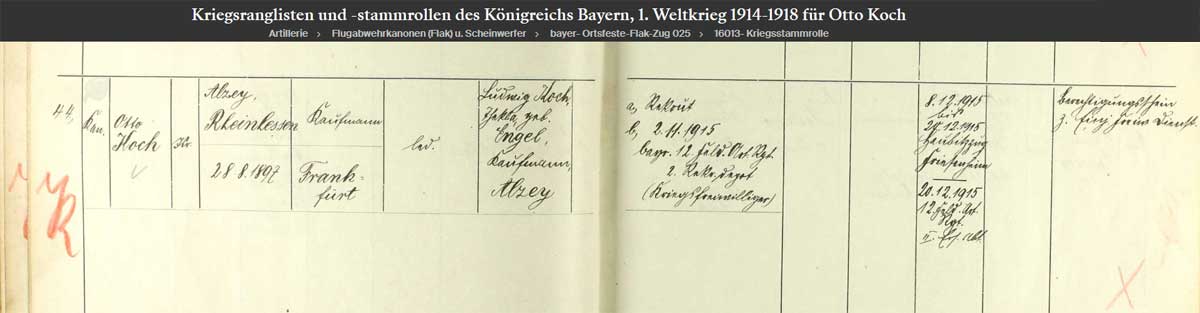 Kriegsranglisten und -stammrollen des Königreichs Bayern, 1. Weltkrieg 1914-1918 für Otto Koch
Artillerie > Flugabwehrkanonen (Flak) u. Scheinwerfer > bayer- Ortsfeste-Flak-Zug 025 > 16013- Kriegsstammrolle
44,
Kan.
Otto
Koch
Alzey,
Rheinhessen
28.8.1897
Kaufmann
Frank-
furt
led.
Ludwig Koch,
Thekla, geb.
Engel,
Kaufmann,
Alzey
a, Rekrut
b, 2.11.1915
bayr. 12 Feld. Art. Rgt.
2. Rekr. depot
(Kriegsfreiwilliger)
8.12.1915
bis
Haubitzzug
Friesenheim
20.12.1915
12. Feld. Art.
Rgt.
II. Ers. Abt.
Berechtigungsschein
z. Einj. freiw. Dienst.